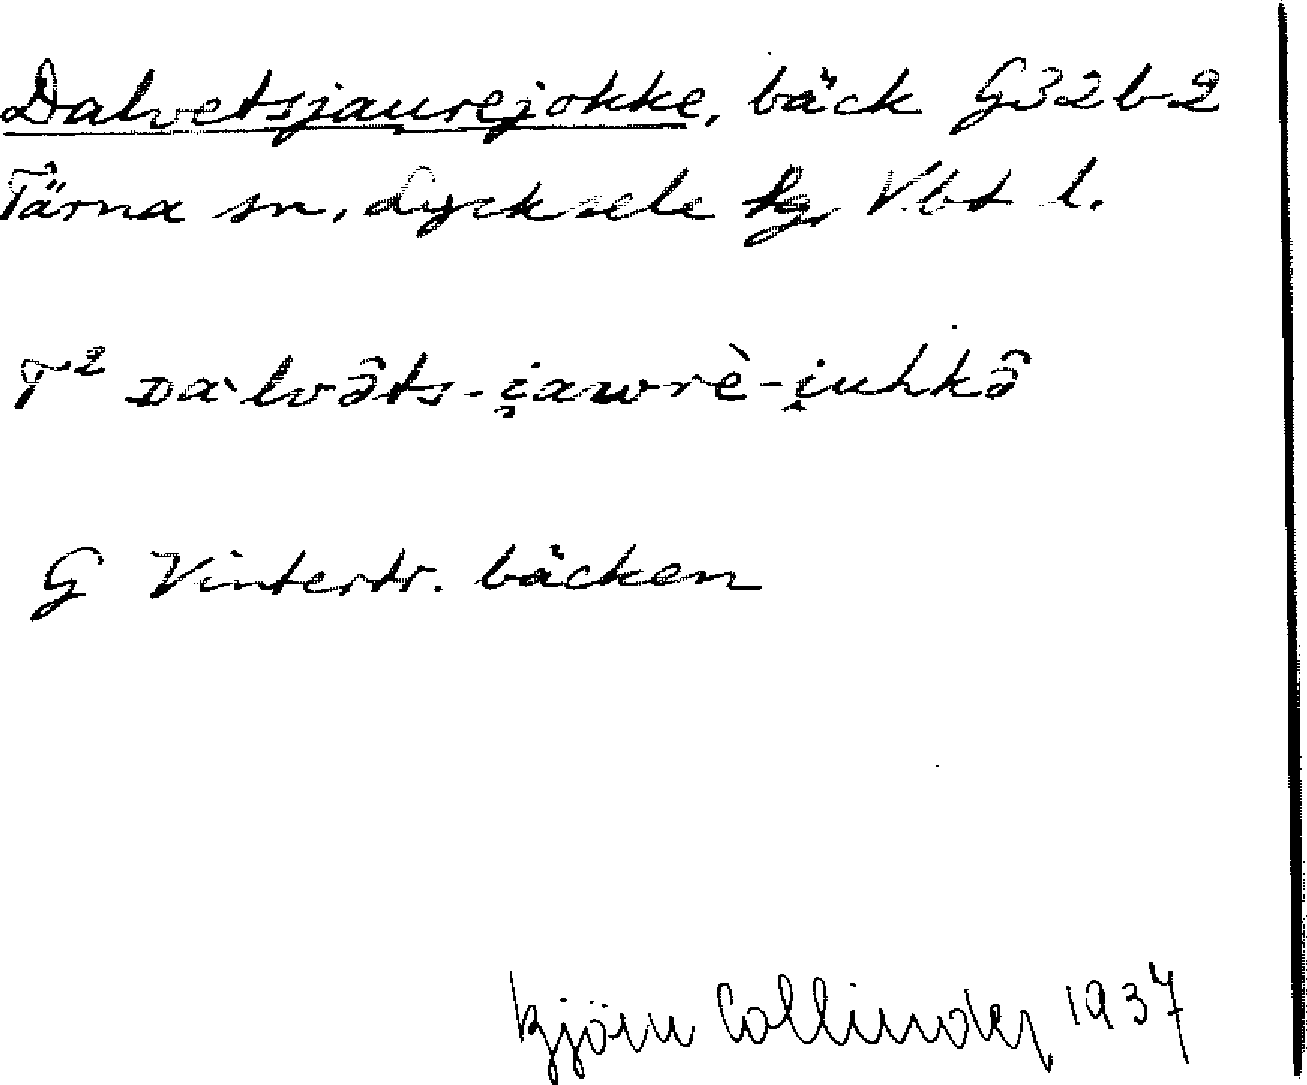 Dalvetsjaurejokke, bäck G32b2
Tärna sn, Lycksele lg, Vbt l.
T² ᴅàlvâts-i̯awrè-i̯uhkâ
G Vintertr. bäcken
Björn Collinder 1937